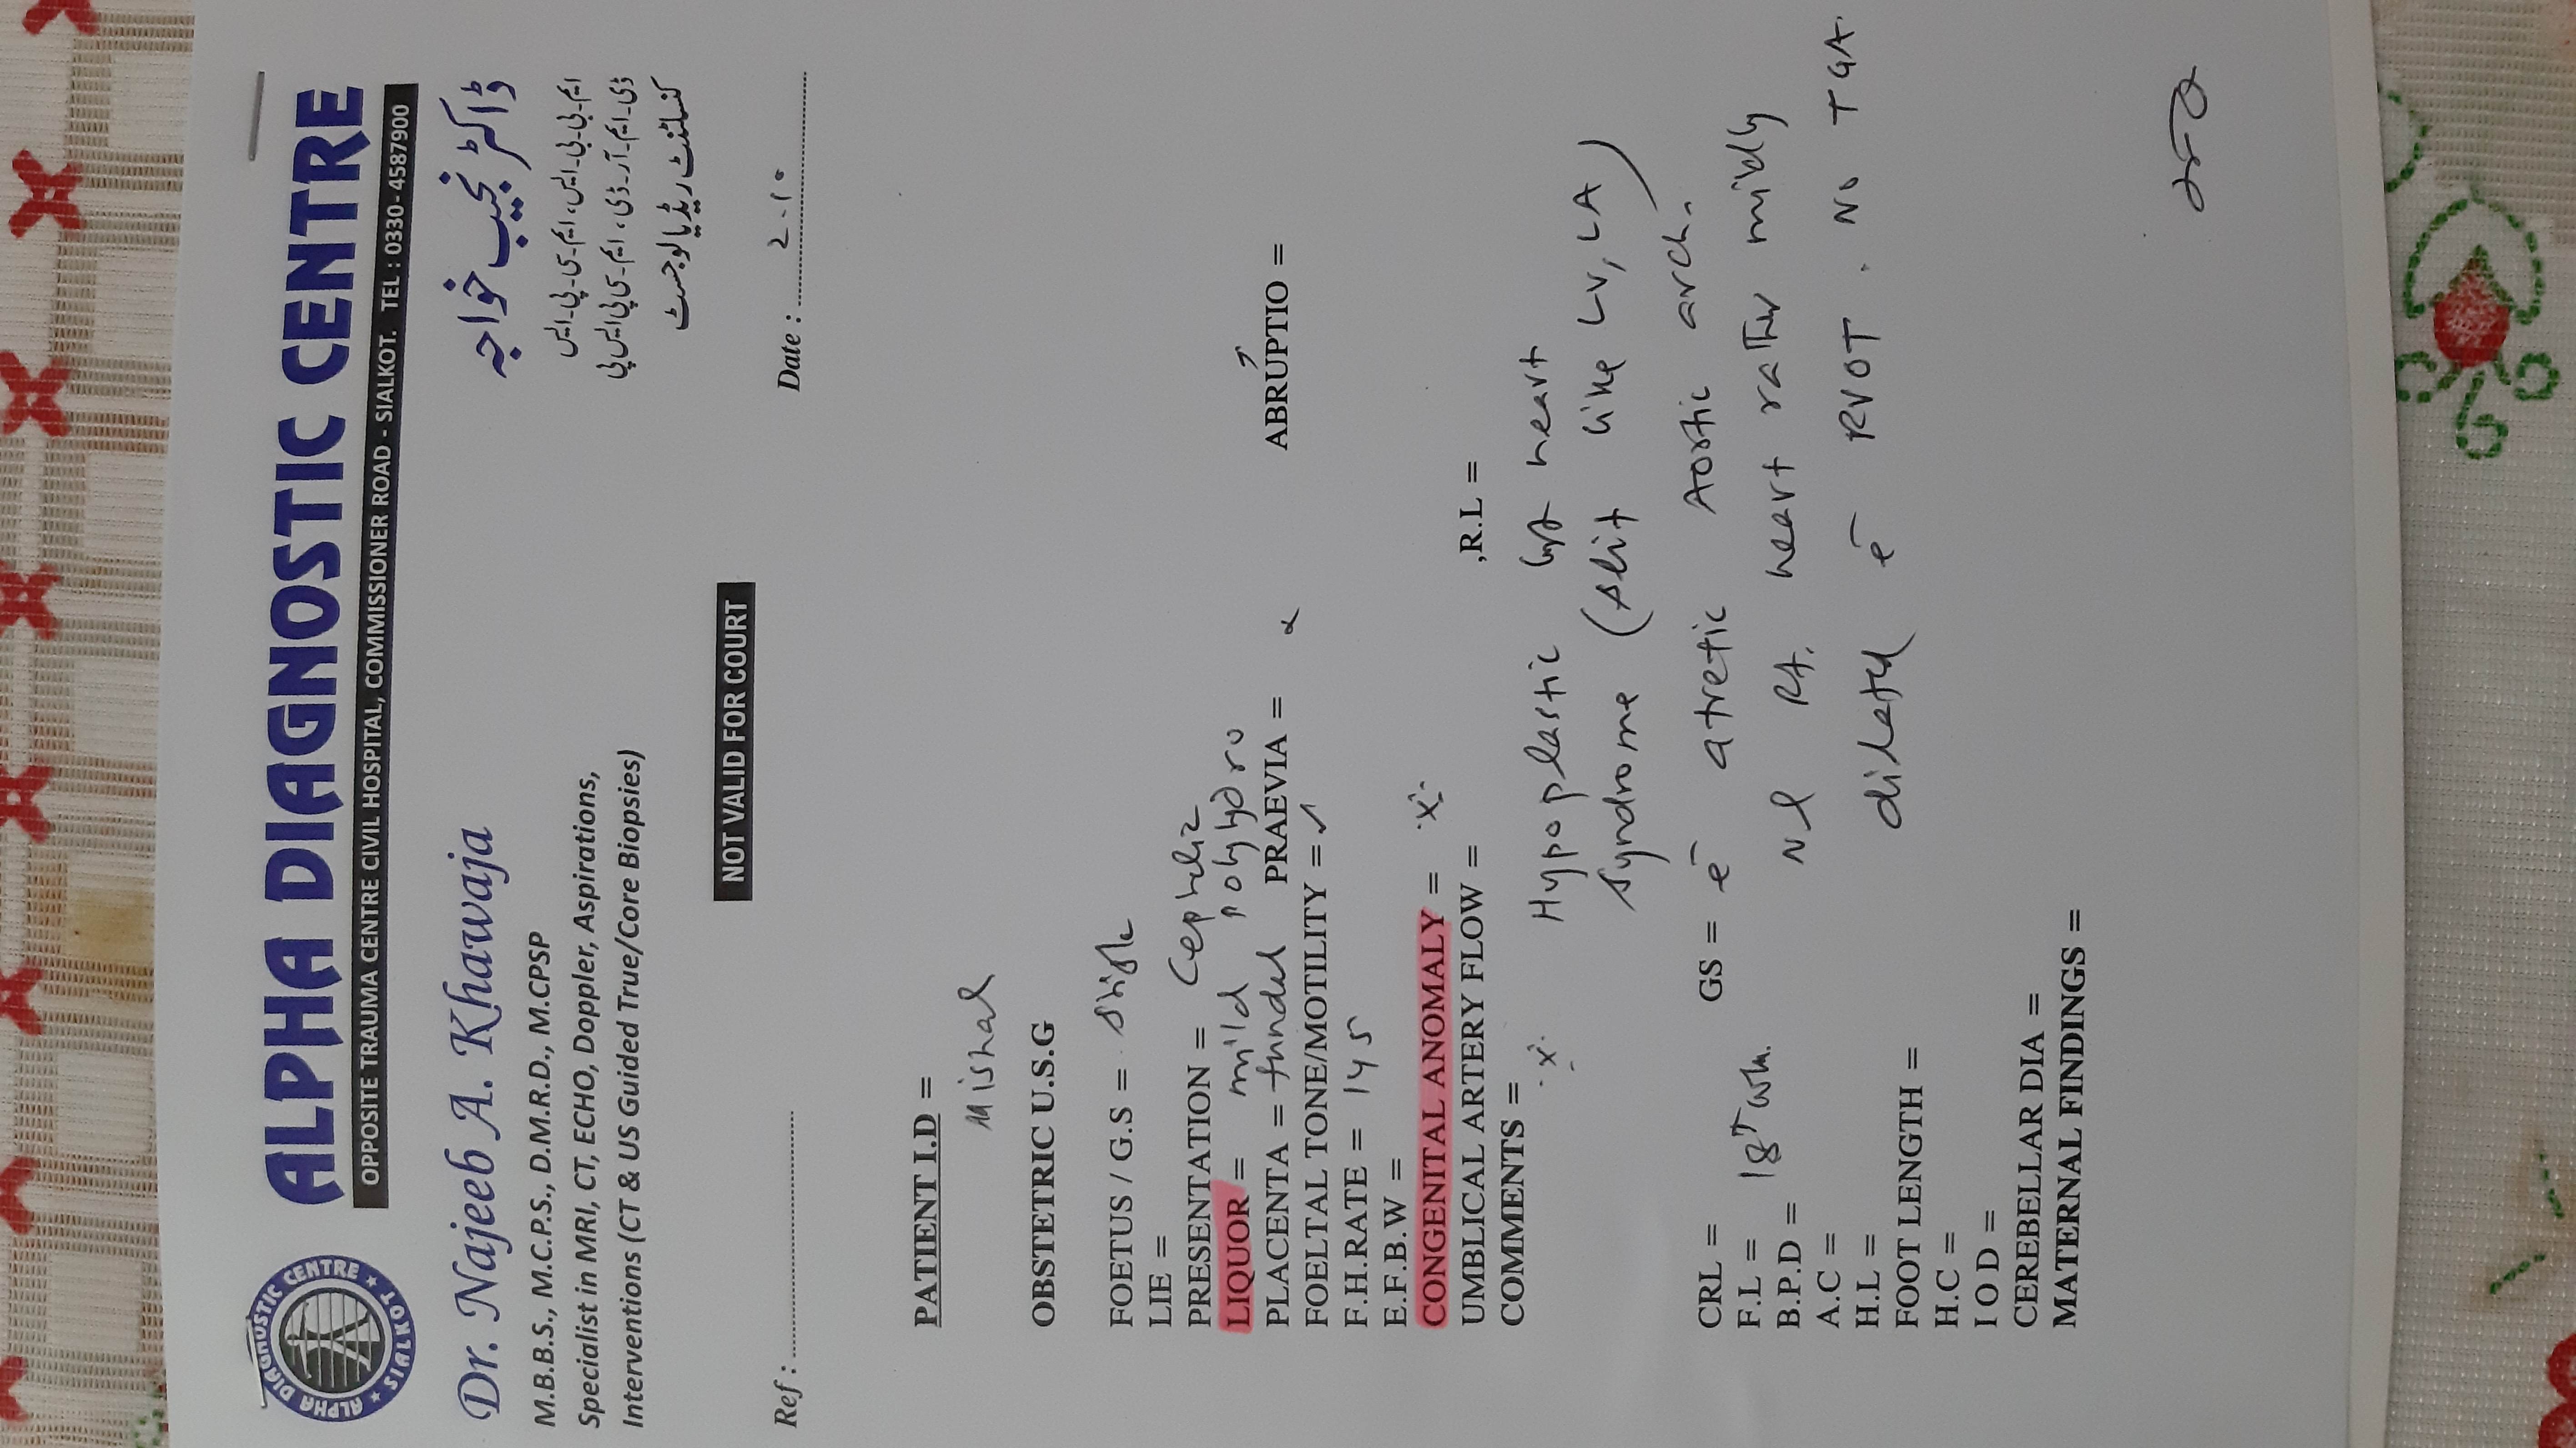 ALPHA DIAGNOSTIC CENTRE
OPPOSITE TRAUMA CENTRE CIVIL HOSPITAL, COMMISSIONER ROAD - SIALKOT. TEL : 0330-4587900
ALPHA DIAGNOSTIC CENTRE ★ SIALKOT ★
Dr. Najeeb A. Khawaja
M.B.B.S., M.C.P.S., D.M.R.D., M.CPSP
Specialist in MRI, CT, ECHO, Doppler, Aspirations,
Interventions (CT & US Guided True/Core Biopsies)
ڈاکٹر نجیب خواجہ
ایم-بی-بی-ایس، ایم-سی-پی-ایس
ڈی-ایم-آر-ڈی، ایم-سی پی ایس پی
کنسلٹنٹ ریڈیالوجسٹ
NOT VALID FOR COURT
Ref : Date : 2-10
PATIENT I.D =
Mishal
OBSTETRIC U.S.G
FOETUS / G.S = single
LIE =
PRESENTATION = Cephalic
LIQUOR = mild polyhydro
PLACENTA = fundal PRAEVIA = ABRUPTIO =
FOELTAL TONE/MOTILITY = ✓
F.H.RATE = 145
E.F.B.W =
CONGENITAL ANOMALY = x
UMBLICAL ARTERY FLOW = ,R.L =
COMMENTS =
x Hypoplastic left heart
syndrome (slit like LV, LA)
CRL = GS = c̄ atretic Aortic arch.
F.L = 18+ wk.
B.P.D = Nl Rt. heart rather mildly
A.C =
H.L = dilated c̄ RVOT. No TGA.
FOOT LENGTH =
H.C =
I O D =
CEREBELLAR DIA =
MATERNAL FINDINGS =